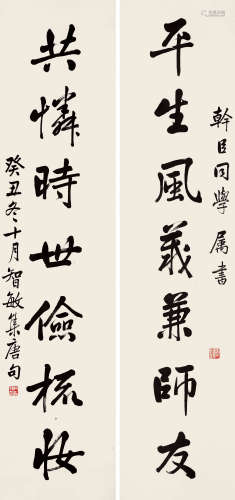 幹臣同學屬書
平生風義兼師友
共憐時世儉梳妝
癸丑冬十月智敏集唐句